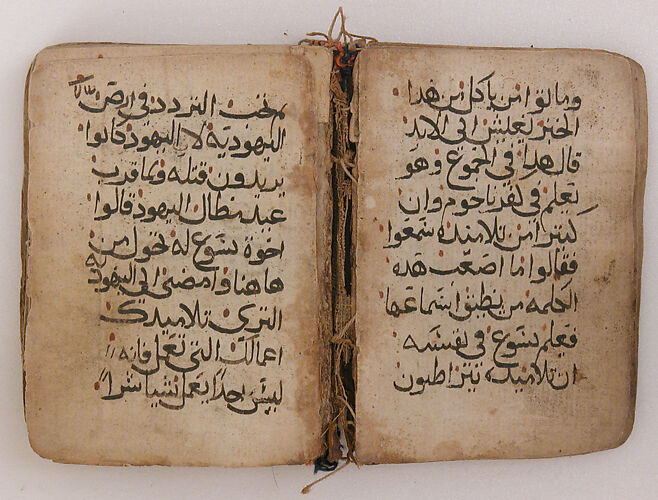 وماتوا من ياكل من هدا
الخبز يعيش الى الابد
قال هدا في المجمع وهو
يعلم في كفرناحوم وان
كثيرا من تلاميده سمعوا
فقالوا ما اصعب هده
الكلمه من يطيق استماعها
فعلم يسوع في نفسه
ان تلاميده يتراطنون
يحب التردد في ارض
اليهودية لان اليهود كانوا
يريدون قتله فلما قرب
عيد مظال اليهود قالوا
اخوة يسوع له تحول من
هاهنا وامضي الى اليهوديه
لترى تلاميدك
اعمالك التي تعمل فانه
ليس احدا يعمل شيا سرا